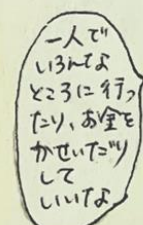 一人で
いろんな
ところに行っ
たり、お金を
かせいだり
して
いいな